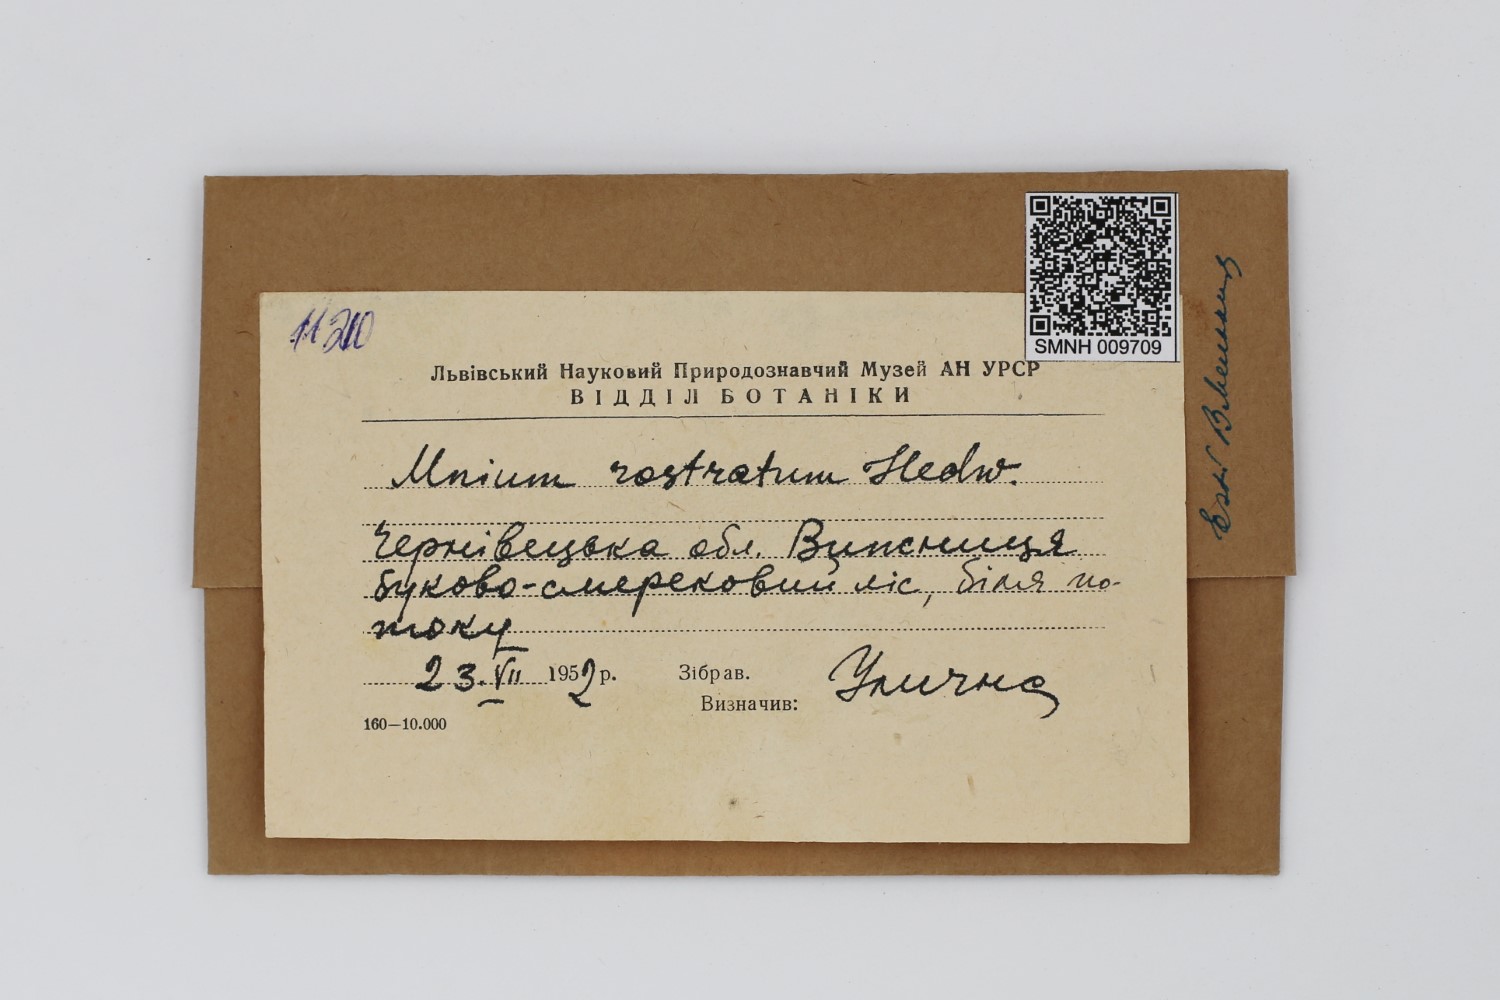 11210
SMNH 009709
Львівський Науковий Природознавчий Музей АН УРСР
ВІДДІЛ БОТАНІКИ
Mnium rostratum Hedw.
Чернівецька обл. Вижниця
буково-смерековий ліс, біля по-
току
23.VII 1952 р. Зібрав.
Визначив: Улична
160—10.000
Есть В